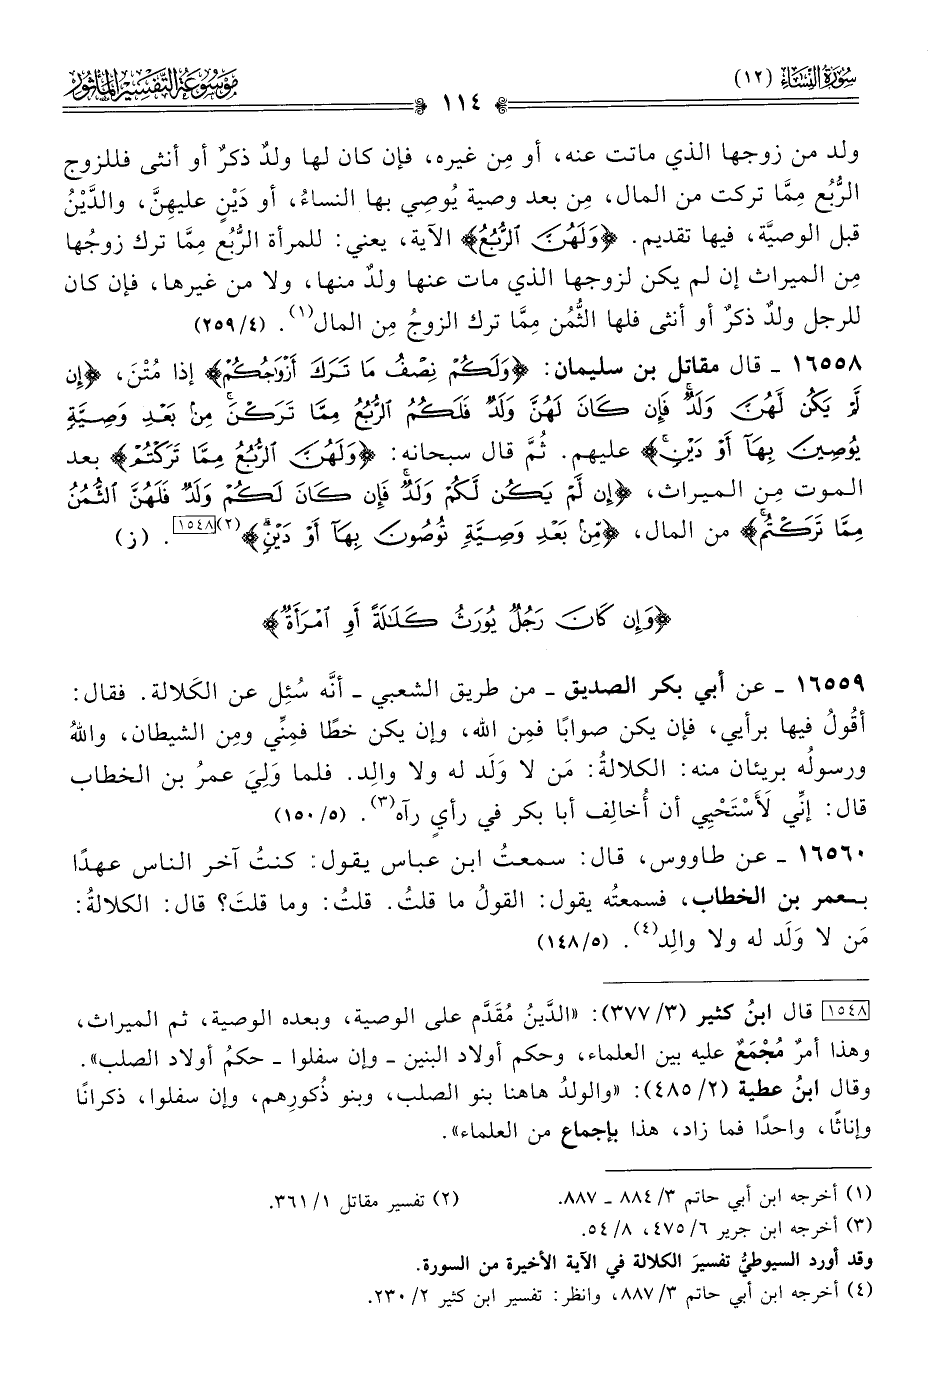 سُورَةُ النِّسَاءِ (١٢)
١١٤
مَوْسُوعَةُ التَّفْسِيرِ المَأْثُورِ
ولد من زوجها الذي ماتت عنه، أو مِن غيره، فإن كان لها ولدٌ ذكرٌ أو أنثى فللزوج
الرُّبُع مِمَّا تركت من المال، مِن بعد وصية يُوصِي بها النساءُ، أو دَيْنٍ عليهنَّ، والدَّيْنُ
قبل الوصيَّة، فيها تقديم. ﴿وَلَهُنَّ ٱلرُّبُعُ﴾ الآية، يعني: للمرأة الرُّبُع مِمَّا ترك زوجُها
مِن الميراث إن لم يكن لزوجها الذي مات عنها ولدٌ منها، ولا من غيرها، فإن كان
للرجل ولدٌ ذكرٌ أو أنثى فلها الثُّمُن مِمَّا ترك الزوجُ مِن المال(١). (٢٥٩/٤)
١٦٥٥٨ ـ قال مقاتل بن سليمان: ﴿وَلَكُمْ نِصْفُ مَا تَرَكَ أَزْوَٰجُكُمْ﴾ إذا مُتْنَ، ﴿إِن
لَّمْ يَكُن لَّهُنَّ وَلَدٌ فَإِن كَانَ لَهُنَّ وَلَدٌ فَلَكُمُ ٱلرُّبُعُ مِمَّا تَرَكْنَ مِنۢ بَعْدِ وَصِيَّةٍ
يُوصِينَ بِهَآ أَوْ دَيْنٍ﴾ عليهم. ثُمَّ قال سبحانه: ﴿وَلَهُنَّ ٱلرُّبُعُ مِمَّا تَرَكْتُمْ﴾ بعد
الموت مِن الميراث، ﴿إِن لَّمْ يَكُن لَّكُمْ وَلَدٌ فَإِن كَانَ لَكُمْ وَلَدٌ فَلَهُنَّ ٱلثُّمُنُ
مِمَّا تَرَكْتُم﴾ من المال، ﴿مِّنۢ بَعْدِ وَصِيَّةٍ تُوصُونَ بِهَآ أَوْ دَيْنٍ﴾(٢)[١٥٤٨]. (ز)
﴿وَإِن كَانَ رَجُلٌ يُورَثُ كَلَٰلَةً أَوِ ٱمْرَأَةٌ﴾
١٦٥٥٩ ـ عن أبي بكر الصديق ـ من طريق الشعبي ـ أنَّه سُئِل عن الكَلالة. فقال:
أقُولُ فيها برأيي، فإن يكن صوابًا فمِن الله، وإن يكن خطًا فمِنِّي ومِن الشيطان، واللهُ
ورسولُه بريئان منه: الكلالةُ: مَن لا وَلَد له ولا والِد. فلما وَلِيَ عمرُ بن الخطاب
قال: إنِّي لَأَسْتَحْيِي أن أُخالِف أبا بكر في رأيٍ رآه(٣). (١٥٠/٥)
١٦٥٦٠ ـ عن طاووس، قال: سمعتُ ابن عباس يقول: كنتُ آخر الناس عهدًا
بعمر بن الخطاب، فسمعتُه يقول: القولُ ما قلتُ. قلتُ: وما قلتَ؟ قال: الكلالةُ:
مَن لا وَلَد له ولا والِد(٤). (١٤٨/٥)
[١٥٤٨] قال ابنُ كثير (٣٧٧/٣): «الدَّينُ مُقَدَّم على الوصية، وبعده الوصية، ثم الميراث،
وهذا أمرٌ مُجْمَعٌ عليه بين العلماء، وحكم أولاد البنين ـ وإن سفلوا ـ حكمُ أولاد الصلب».
وقال ابنُ عطية (٤٨٥/٢): «والولدُ هاهنا بنو الصلب، وبنو ذُكورِهم، وإن سفلوا، ذكرانًا
وإناثًا، واحدًا فما زاد، هذا بإجماع من العلماء».
(١) أخرجه ابن أبي حاتم ٣/ ٨٨٤ ـ ٨٨٧. (٢) تفسير مقاتل ١/ ٣٦١.
(٣) أخرجه ابن جرير ٦/ ٤٧٥، ٨/ ٥٤.
وقد أورد السيوطيُّ تفسيرَ الكلالة في الآية الأخيرة من السورة.
(٤) أخرجه ابن أبي حاتم ٣/ ٨٨٧، وانظر: تفسير ابن كثير ٢/ ٢٣٠.